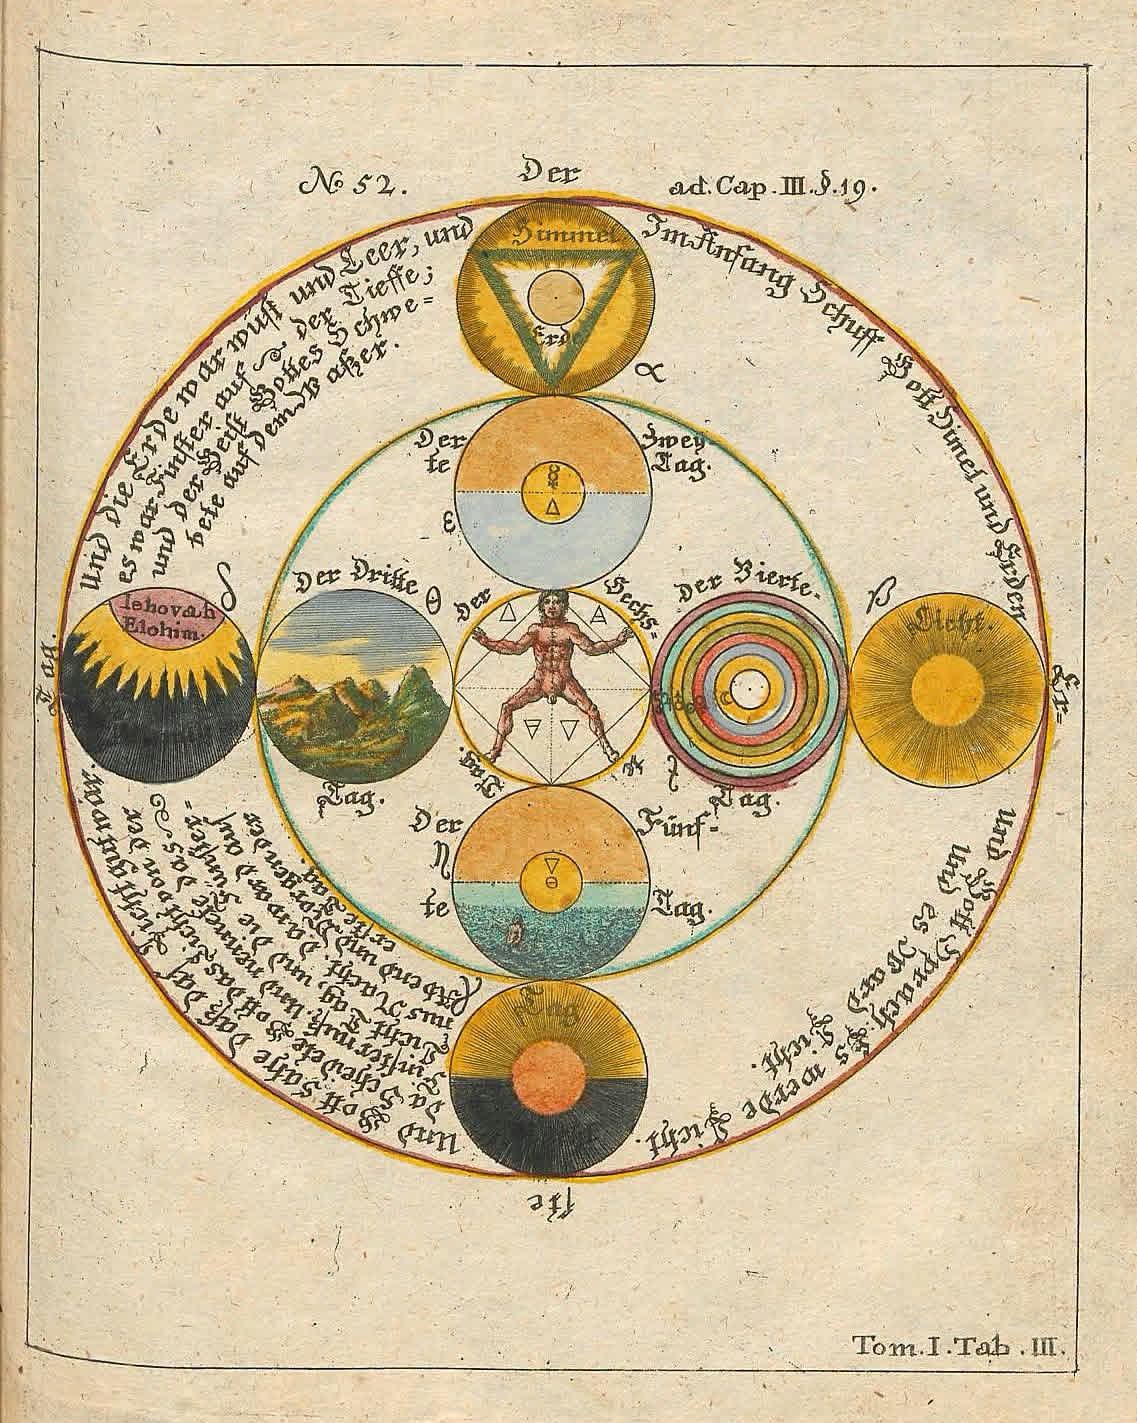 No 52.
Der
ad. Cap. III. §. 19.
Im Anfang Schuff Gott Himel und Erden
und die Erde war wüst und Leer, und
es war Finster auf der Tieffe;
und der Geist Gottes Schwe=
bete auf dem Waßer.
Himmel
Erde
α
Der
Zwey
te
Tag.
ε
Der Dritte
θ
Tag.
Der
Sechs=
Tag.
Der Vierte=
Tag.
δ
Iehovah
Elohim.
β
Licht.
Tag.
Er=
Der
Fünf=
η
te
Tag.
und Gott Sprach: Es werde Licht.
und es Ward Licht.
Und Gott sahe daß das Licht gut war
da Scheidete Gott das Licht von der
Finsternuß. und nennete das
Licht Tag, und die Finster=
nus Nacht. da ward auß
Abend und Morgen der
erste Tag.
Tag
ste
Tom. I. Tab. III.